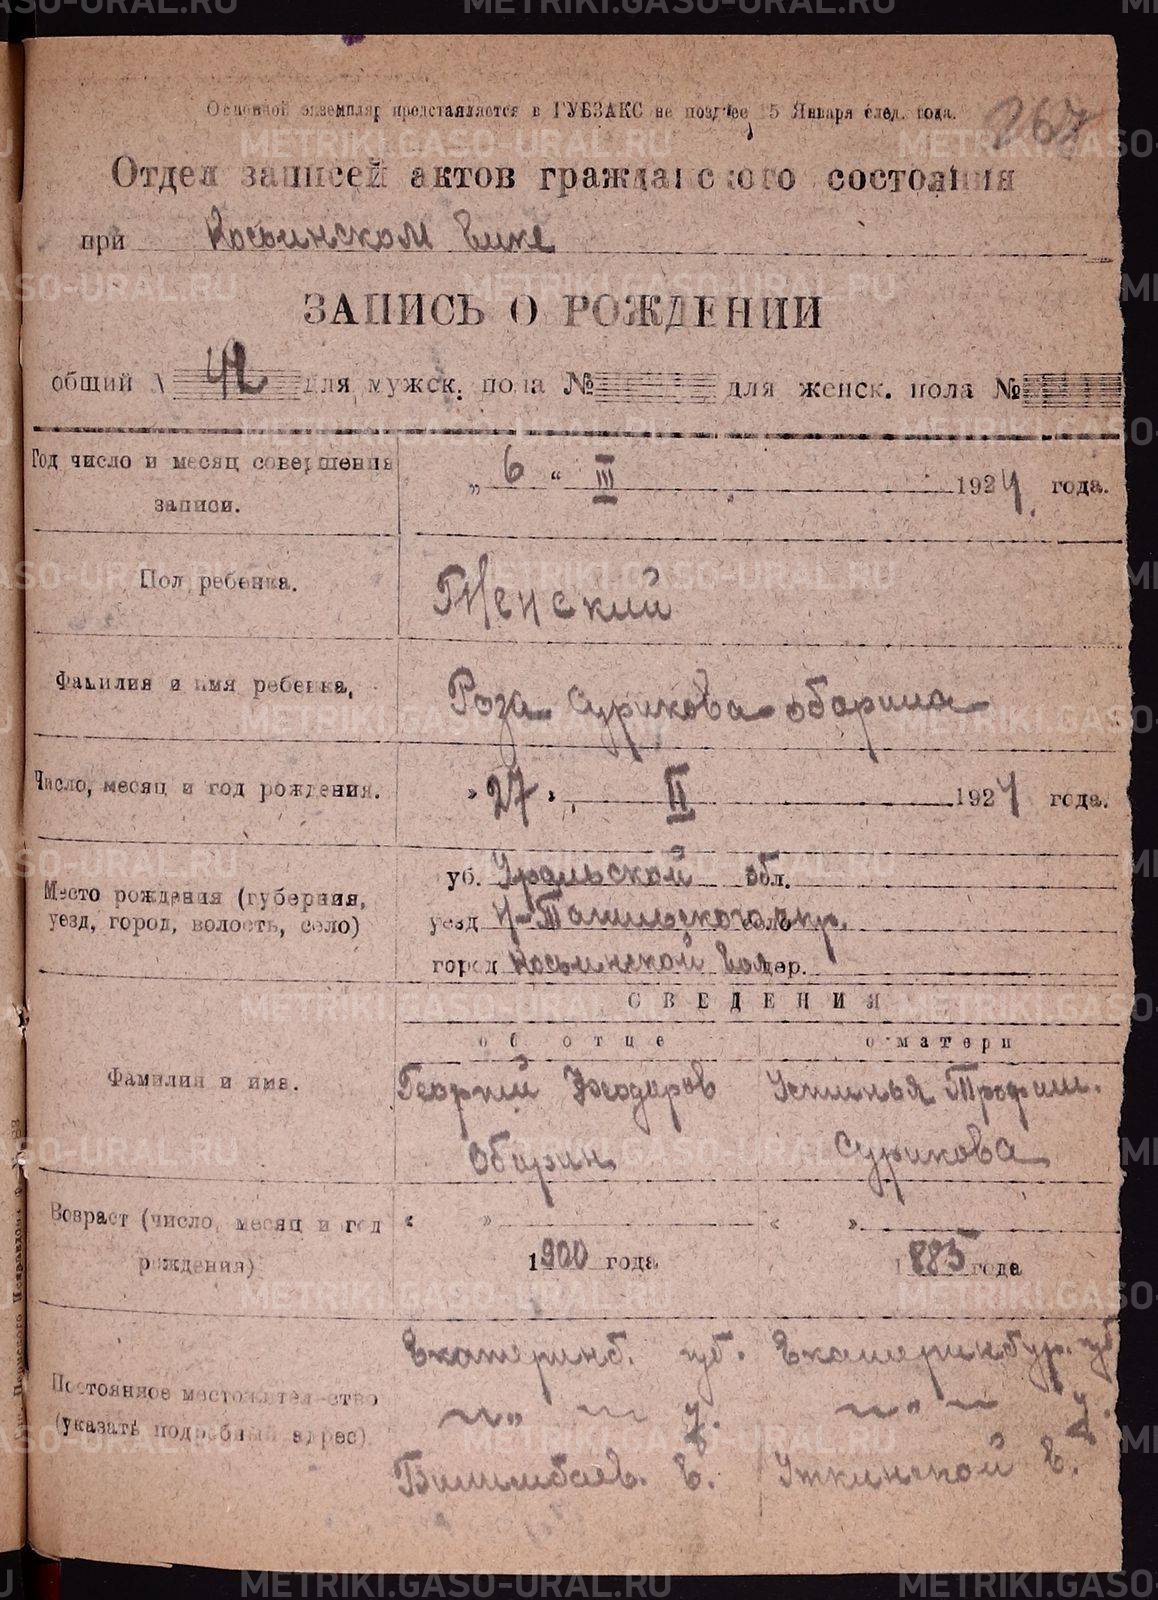 267
Основной экземпляр представляется в ГУБЗАКС не позднее 15 Января след. года.
Отдел записей актов гражданского состояния
при Косьинском Вике
ЗАПИСЬ О РОЖДЕНИИ
общий № 42 для мужск. пола № для женск. пола №
Год число и месяц совершения записи.
„ 6 “ III 1924 года.
Пол ребенка.
Женский
Фамилия и имя ребенка,
Роза Сурикова Обарина
Число, месяц и год рождения.
„ 27 „ II 1924 года.
Место рождения (губерния, уезд, город, волость, село)
губ. Уральской обл.
уезд Н-Тагильского окр.
город Косьинской Вол дер.
СВЕДЕНИЯ
об отце
о матери
Фамилия и имя.
Георгий Федоров Обарин
Устинья Трофим. Сурикова
Возраст (число, месяц и год рождения)
« » 1900 года
« » 1885 года
Постоянное местожительство (указать подробный адрес)
Екатеринб. губ.
—"— —"— у.
Билимбаев. в.
Екатеринбур. губ
—"— у.
Уткинской в.
METRIKI.GASO-URAL.RU